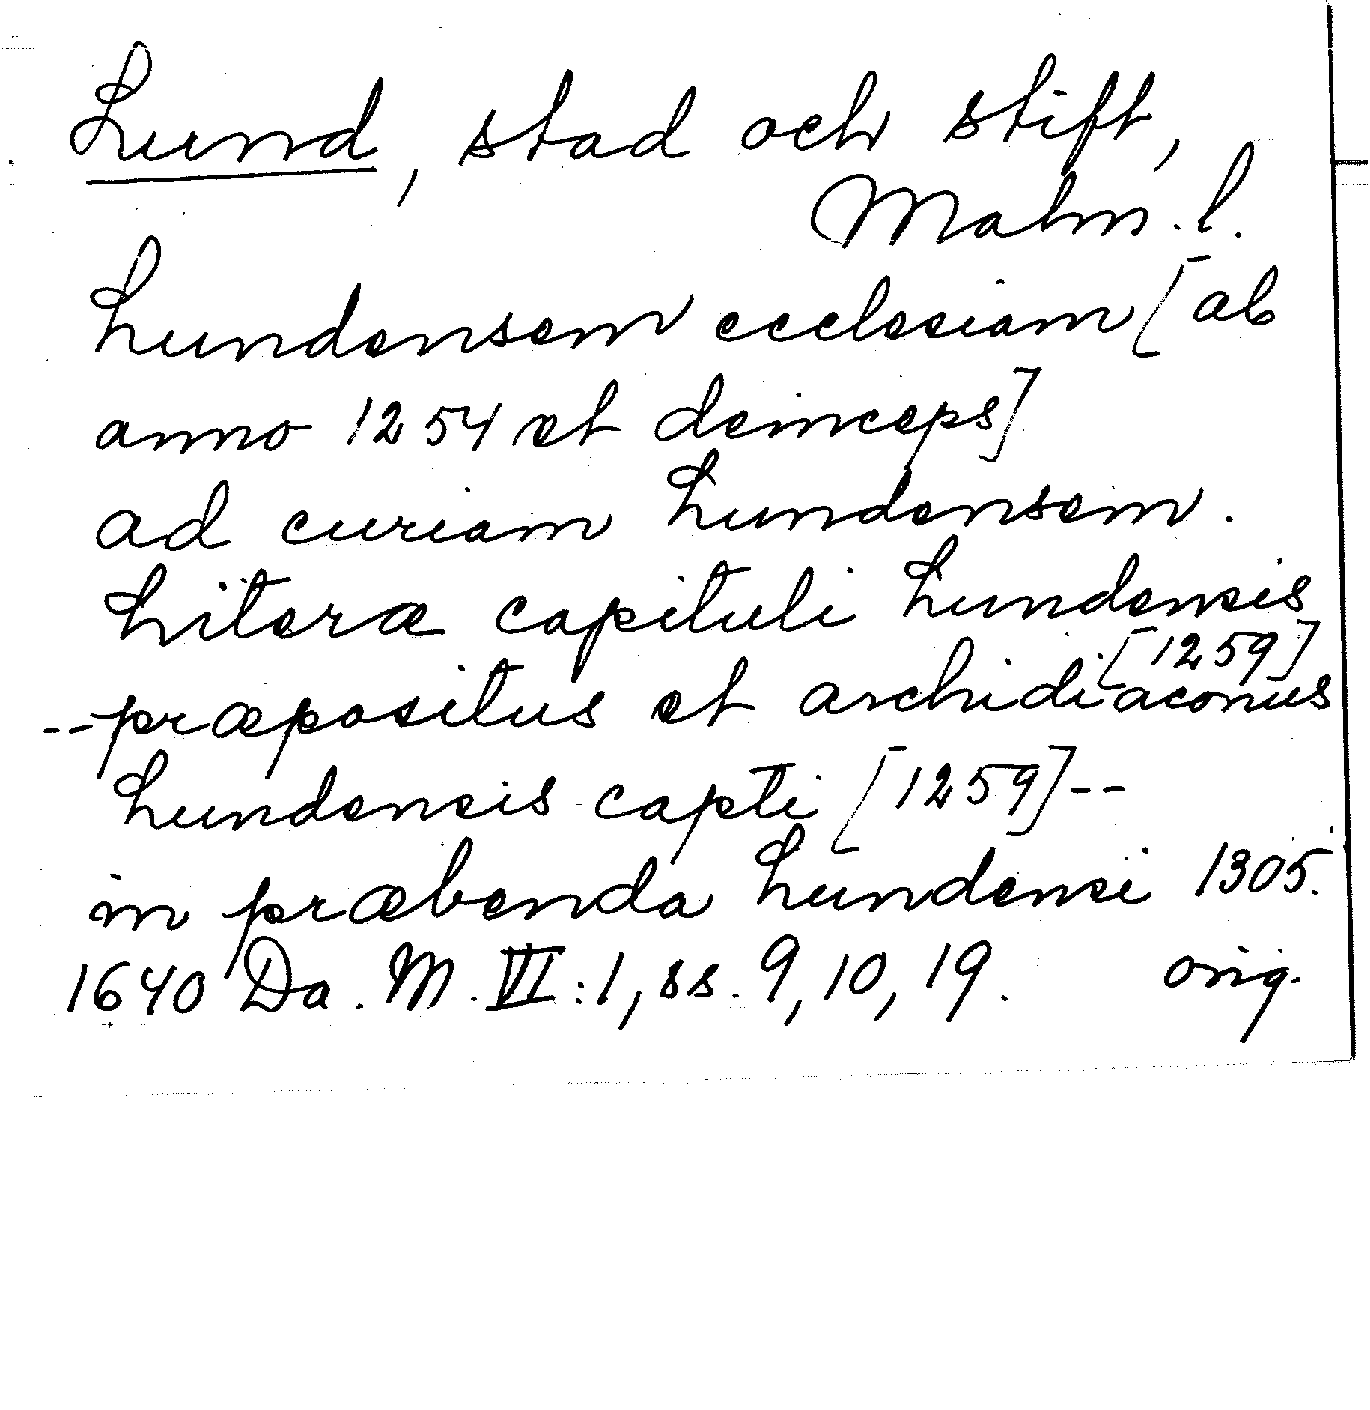 Lund, stad och stift,
Malm. l.
Lundensem ecclesiam [ab
anno 1254 et deinceps]
ad curiam Lundensem.
Literæ capituli Lundensis
[1259]
--præpositus et archidiaconus
Lundensis capti [1259]--
in præbenda Lundensi 1305.
1640 Da. M. VI:1, ss. 9, 10, 19. orig.